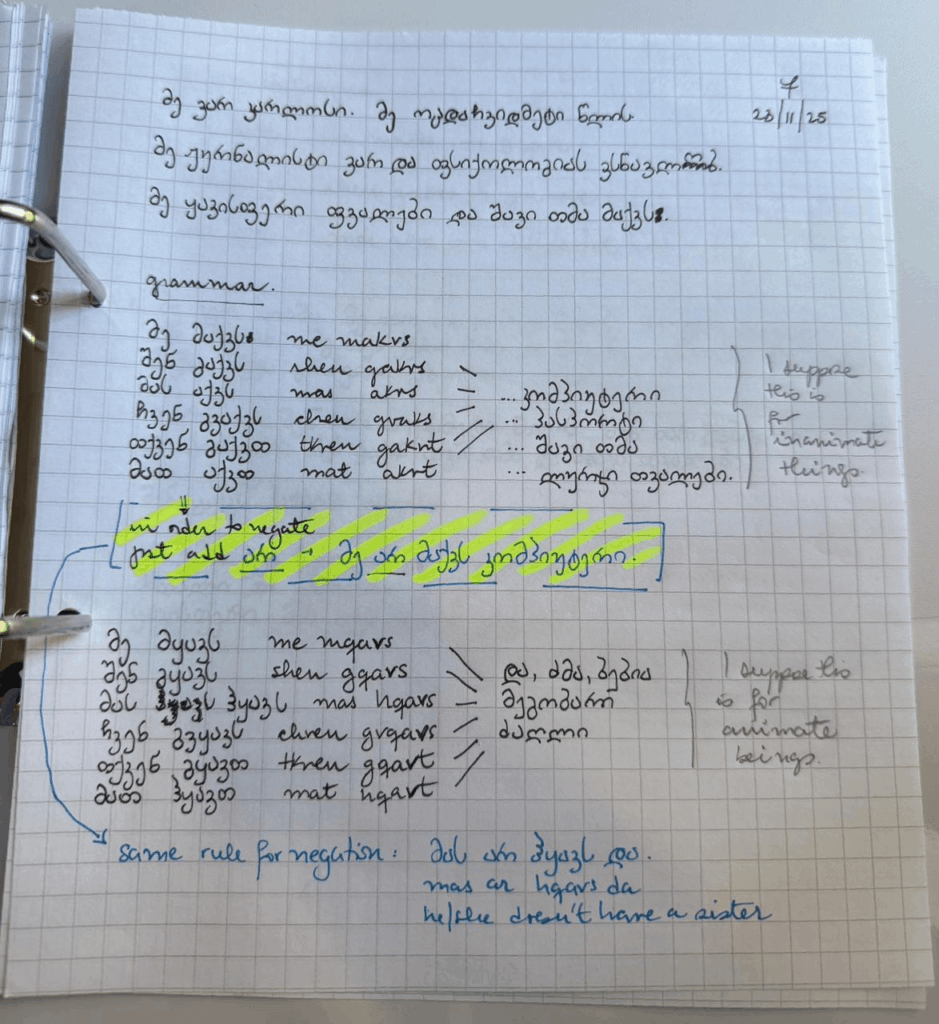 7
23/11/25
მე ვარ კარლოსი. მე ოცდაჩვიდმეტი წლის
მე ჟურნალისტი ვარ და ფსიქოლოგიას ვსწავლობ.
მე ყავისფერი თვალები და შავი თმა მაქვს.
grammar.
მე მაქვს me makvs
შენ გაქვს shen gakvs
მას აქვს mas akvs ... კომპიუტერი
ჩვენ გვაქვს chven gvaks ... პასპორტი
თქვენ გაქვთ tkven gakvt ... შავი თმა
მათ აქვთ mat akvt ... ლურჯი თვალები.
I suppose
this is
for
inanimate
things.
in order to negate
just add არ → მე არ მაქვს კომპიუტერი.
მე მყავს me mqavs
შენ გყავს shen gqavs და, ძმა, ბებია
მას ჰყავს mas hqavs მეგობარი
ჩვენ გვყავს chven gvqavs ძაღლი
თქვენ გყავთ tkven gqavt
მათ ჰყავთ mat hqavt
I suppose this
is for
animate
beings.
same rule for negation: მას არ ჰყავს და.
mas ar hqavs da
he/she doesn't have a sister